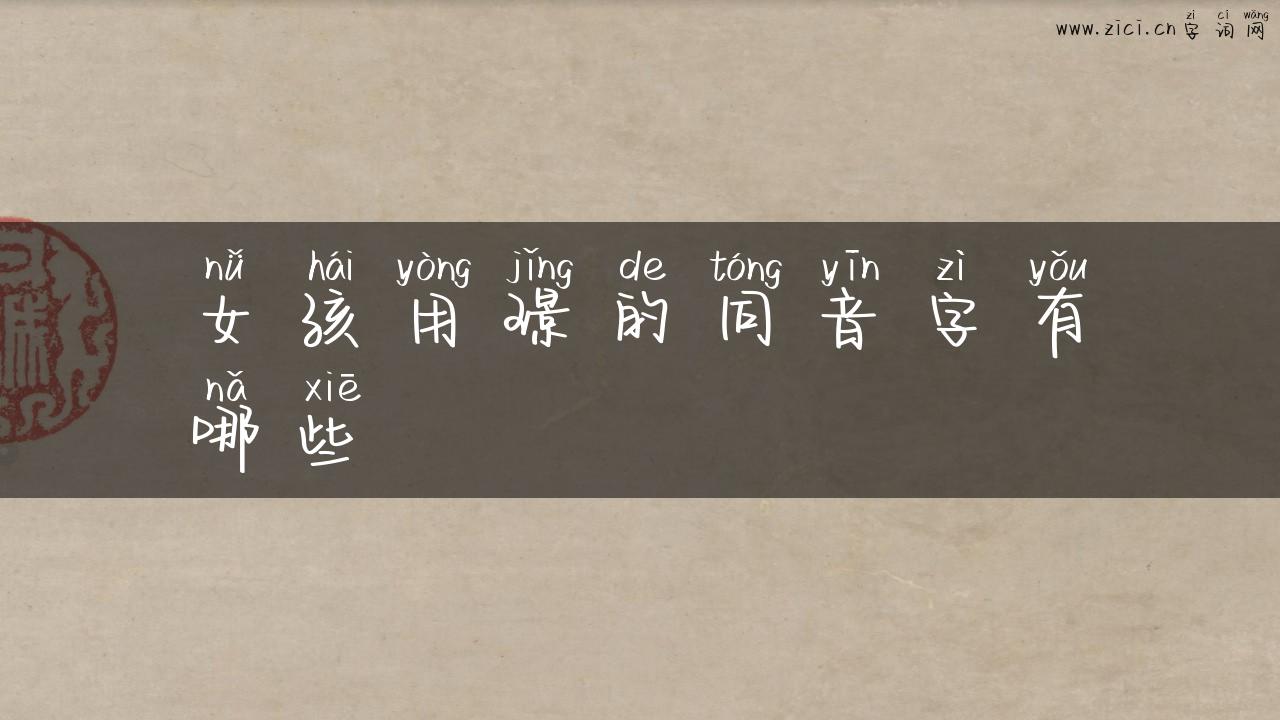 zì cí wǎng
www.zici.cn 字词网
nǚ hái yòng jǐng de tóng yīn zì yǒu
女孩用璟的同音字有
nǎ xiē
哪些